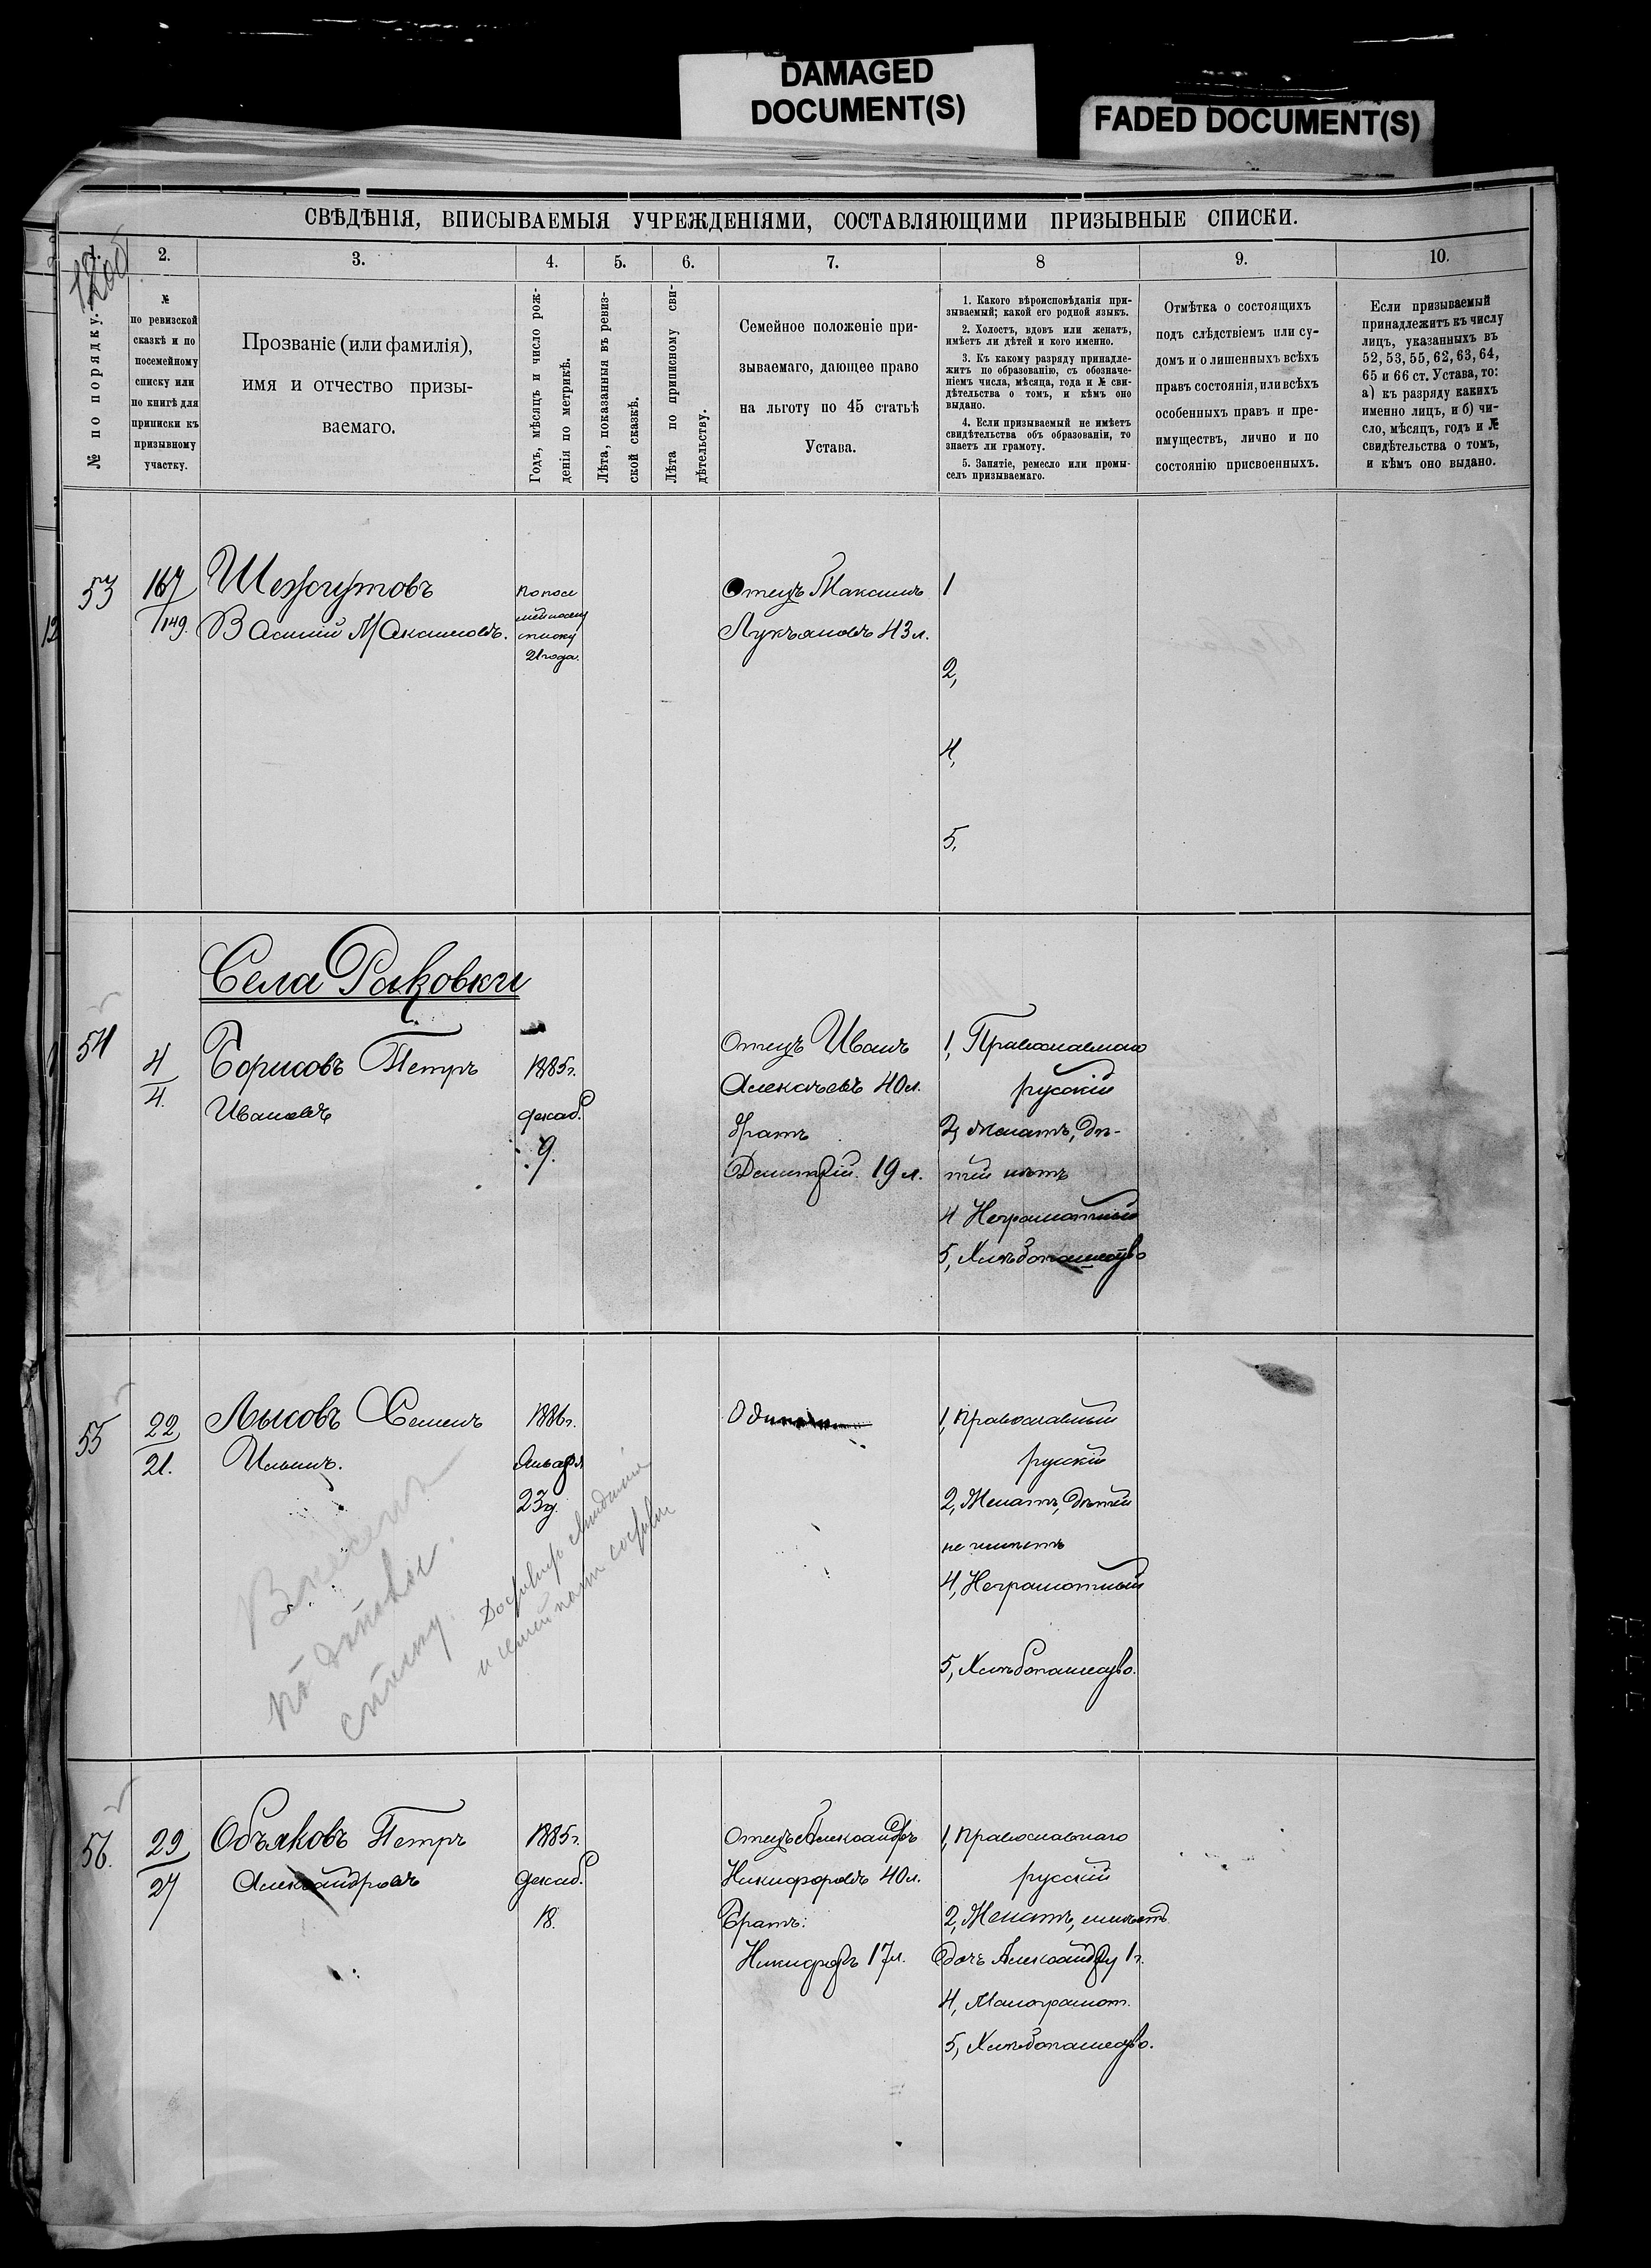 DAMAGED
DOCUMENT(S)
FADED DOCUMENT(S)
СВѢДѢНІЯ, ВПИСЫВАЕМЫЯ УЧРЕЖДЕНІЯМИ, СОСТАВЛЯЮЩИМИ ПРИЗЫВНЫЕ СПИСКИ.
1. 2. 3. 4. 5. 6. 7. 8 9. 10.
№ по порядку.
№
по ревизской
сказкѣ и по
посемейному
списку или
по книгѣ для
приписки къ
призывному
участку.
Прозваніе (или фамилія),
имя и отчество призы-
ваемаго.
Годъ, мѣсяцъ и число рож-
денія по метрикѣ.
Лѣта, показанныя въ ревиз-
ской сказкѣ.
Лѣта по приписному сви-
дѣтельству.
Семейное положеніе при-
зываемаго, дающее право
на льготу по 45 статьѣ
Устава.
1. Какого вѣроисповѣданія при-
зываемый; какой его родной языкъ.
2. Холостъ, вдовъ или женатъ,
имѣетъ ли дѣтей и кого именно.
3. Къ какому разряду принадле-
житъ по образованію, съ обозначе-
ніемъ числа, мѣсяца, года и № сви-
дѣтельства о томъ, и кѣмъ оно
выдано.
4. Если призываемый не имѣетъ
свидѣтельства объ образованіи, то
знаетъ ли грамоту.
5. Занятіе, ремесло или промы-
селъ призываемаго.
Отмѣтка о состоящихъ
подъ слѣдствіемъ или су-
домъ и о лишенныхъ всѣхъ
правъ состоянія, или всѣхъ
особенныхъ правъ и пре-
имуществъ, лично и по
состоянію присвоенныхъ.
Если призываемый
принадлежитъ къ числу
лицъ, указанныхъ въ
52, 53, 55, 62, 63, 64,
65 и 66 ст. Устава, то:
а) къ разряду какихъ
именно лицъ, и б) чи-
сло, мѣсяцъ, годъ и №
свидѣтельства о томъ,
и кѣмъ оно выдано.
53
167
149.
Василій Максимовъ.
по посе
мейному
списку
21 года.
Отецъ Максимъ
Лукьяновъ 43 л.
1
2,
4,
5,
Села Раковки
54
4
4.
Борисовъ Петръ
Ивановъ
1885г.
декаб.
9.
Отецъ Иванъ
Алексѣевъ 40 л.
братъ
Дмитрій. 19 л.
1, Православнаго
русскій
2, Женатъ, дѣ-
тей нѣтъ
4 Неграмотный
5, Хлѣбопашество
55
22
21.
Лысовъ Семенъ
Ильинъ.
1886г.
Января
23 д.
1, православный
русскій
2, Женатъ, дѣтей
не имѣетъ
4, Неграмотный
5, Хлѣбопашество.
56.
29
27
Объяковъ Петръ
Александровъ
1885г.
декаб.
18.
Отецъ Александръ
Никифоровъ 40 л.
братъ:
Никифоръ 17 л.
1, православнаго
русскій
2, Женатъ, имѣетъ
дочь Александру 1 г.
4, Малограмот.
5, Хлѣбопашество.